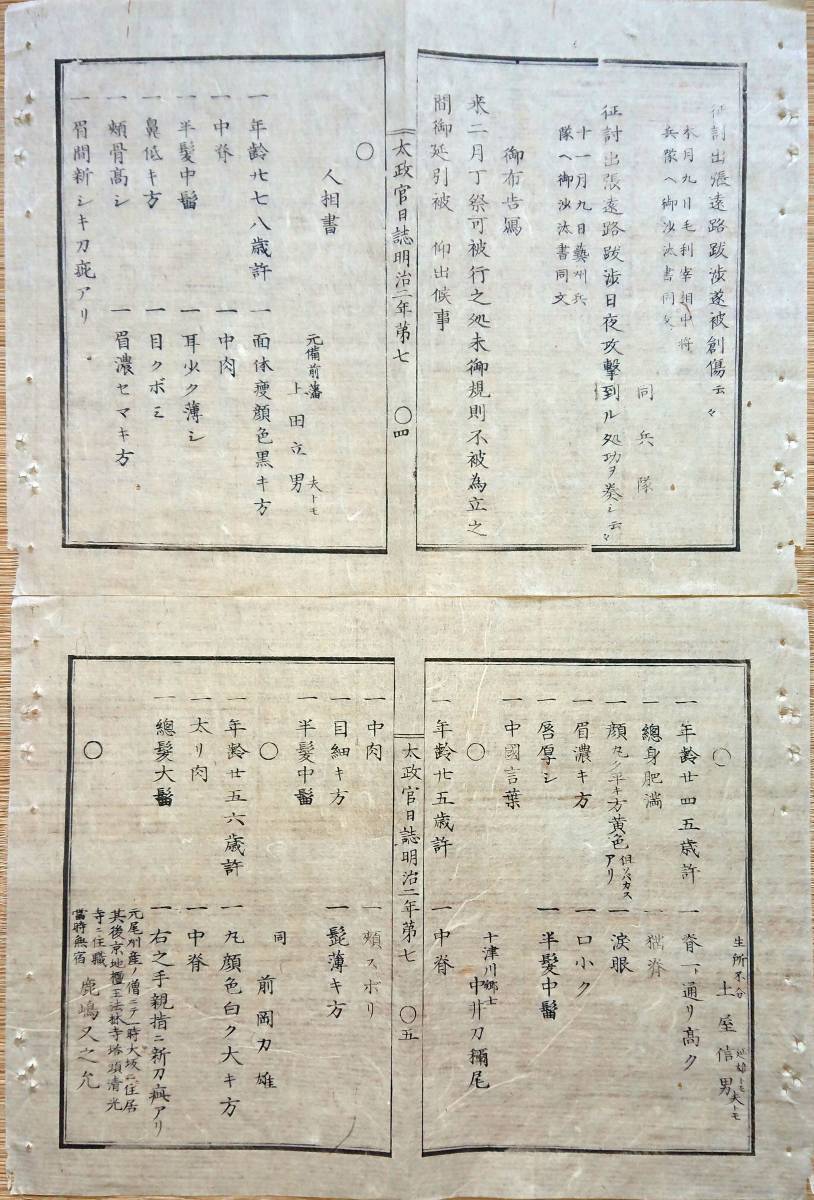 征討出張遠路跋渉遂被創傷云々
本月九日毛利宰相中将
兵隊ヘ御沙汰書同文
同兵隊
征討出張遠路跋渉日夜攻撃到ル処功ヲ奏シ云々
十一月九日藝州兵
隊ヘ御沙汰書同文
御布告寫
来二月丁祭可被行之処未御規則不被為立之
間御延引被 仰出候事
太政官日誌明治二年第七 〇四
〇
人相書
元備前藩
上田立男 夫トモ
一年齢廿七八歳許 一面体痩顔色黒キ方
一中脊 一中肉
一半髪中髷 一耳少ク薄シ
一鼻低キ方 一目クボミ
一頬骨高シ 一眉濃セマキ方
一眉間新シキ刀疵アリ
〇
生所不分
土屋信男 延雄トモ夫トモ
一年齢廿四五歳許 一脊一ト通リ高ク
一總身肥満 一猫脊
一顔丸ク平キ方黄色 但ソバカスアリ 一涙眼
一眉濃キ方 一口小ク
一唇厚シ 一半髪中髷
一中國言葉
〇
十津川郷士
中井刀禰尾
一年齢廿五歳許 一中脊
太政官日誌明治二年第七 〇五
一中肉 一頬スボリ
一目細キ方 一髭薄キ方
一半髪中髷
〇
同
前岡力雄
一年齢廿五六歳許 一丸顔色白ク大キ方
一太リ肉 一中脊
一總髪大髷 一右之手親指ニ新刀疵アリ
〇
元尾州産ノ僧ニテ一時大坂ニ住居
其後京地檀王法林寺塔頭清光
寺ニ住職
當時無宿
鹿嶋又之允